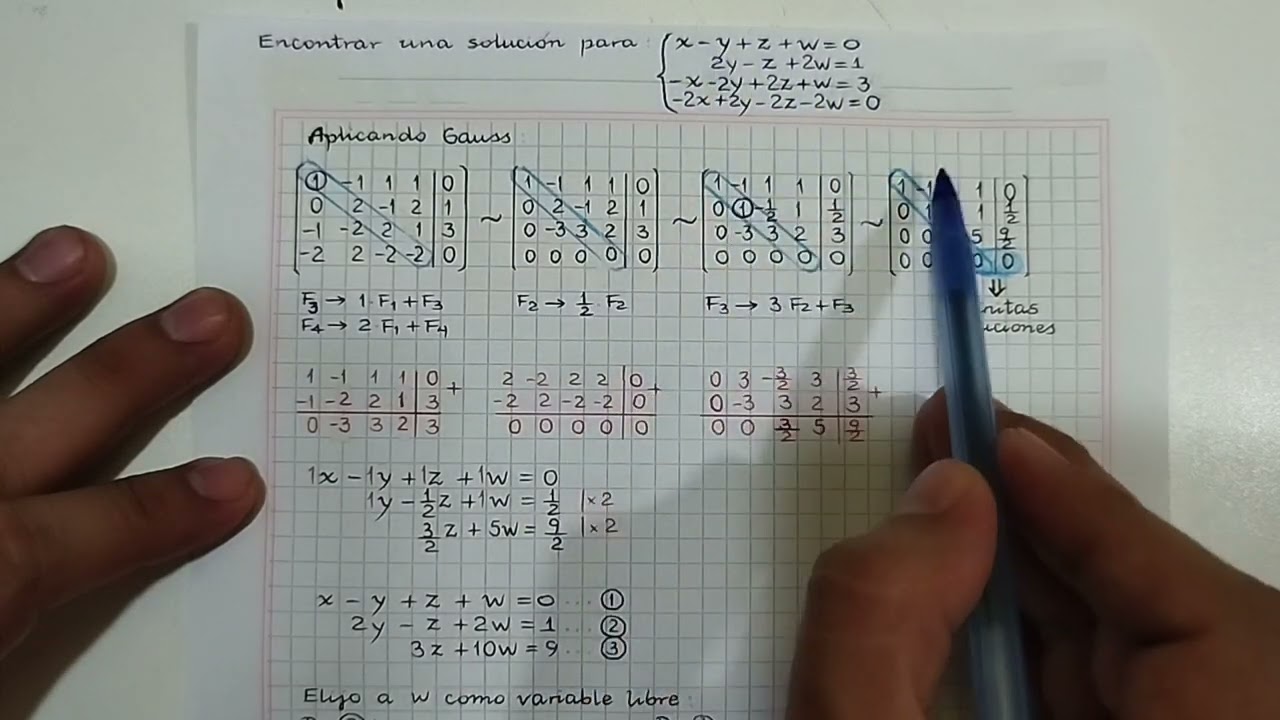 Encontrar una solución para:
x - y + z + w = 0
2y - z + 2w = 1
-x - 2y + 2z + w = 3
-2x + 2y - 2z - 2w = 0
Aplicando Gauss:
1 -1 1 1 | 0
0 2 -1 2 | 1
-1 -2 2 1 | 3
-2 2 -2 -2 | 0
~
1 -1 1 1 | 0
0 2 -1 2 | 1
0 -3 3 2 | 3
0 0 0 0 | 0
~
1 -1 1 1 | 0
0 1 -1/2 1 | 1/2
0 -3 3 2 | 3
0 0 0 0 | 0
~
1 -1 1 | 0
0 1 1 | 1/2
0 0 5 | 9/2
0 0 0 | 0
F3 → 1·F1 + F3
F4 → 2 F1 + F4
F2 → 1/2 F2
F3 → 3 F2 + F3
⇓
1 -1 1 1 | 0 +
-1 -2 2 1 | 3
0 -3 3 2 | 3
2 -2 2 2 | 0 +
-2 2 -2 -2 | 0
0 0 0 0 | 0
0 3 -3/2 3 | 3/2 +
0 -3 3 2 | 3
0 0 3/2 5 | 9/2
1x - 1y + 1z + 1w = 0
1y - 1/2 z + 1w = 1/2 | × 2
3/2 z + 5w = 9/2 | × 2
x - y + z + w = 0 ... ①
2y - z + 2w = 1 ... ②
3z + 10w = 9 ... ③
Elijo a w como variable libre: